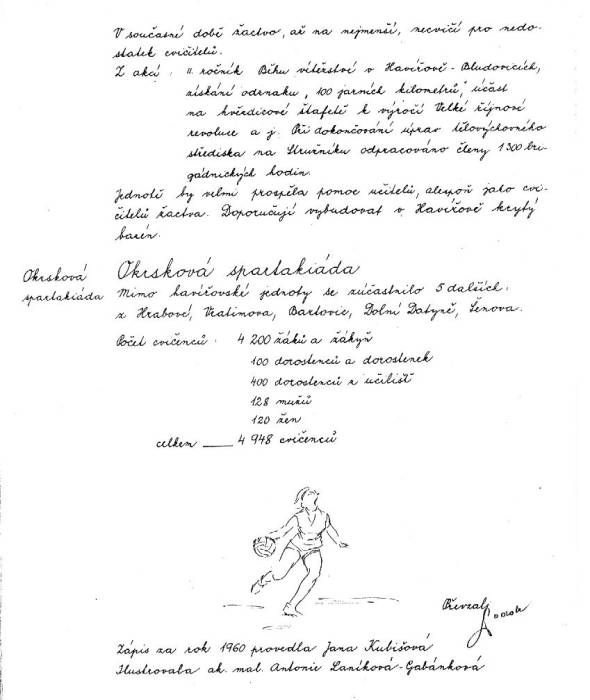 V současné době žactvo, až na nejmenší, necvičí pro nedo-
statek cvičitelů.
Z akcí: II. ročník Běhu vítězství v Havířově-Bludovicích,
získání odznaku „100 jarních kilometrů", účast
na hvězdicové štafetě k výročí Velké říjnové
revoluce a j. Při dokončování úprav tělovýchovného
střediska na Stružníku odpracováno členy 1300 bri-
gádnických hodin.
Jednotě by velmi prospěla pomoc učitelů, alespoň jako cvi-
čitelů žactva. Doporučují vybudovat v Havířově krytý
bazén.
Okrsková
spartakiáda
Okrsková spartakiáda
Mimo havířovské jednoty se zúčastnilo 5 dalších:
z Hrabové, Vratimova, Bartovic, Dolní Datyně, Šenova.
Počet cvičenců: 4 200 žáků a žákyň
100 dorostenců a dorostenek
400 dorostenců z učilišť
128 mužů
120 žen
celkem ___ 4 948 cvičenců
Převzal
Zápis za rok 1960 provedla Jana Kubišová
Ilustrovala ak. mal. Antonie Laníková-Gabánková